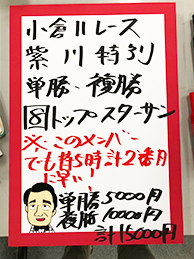 小倉11レース
紫川特別
単勝・複勝
⑧トップスターサン
※このメンバー
でも持5時計2番目
に早い!
単勝5000円
複勝10000円
計15000円